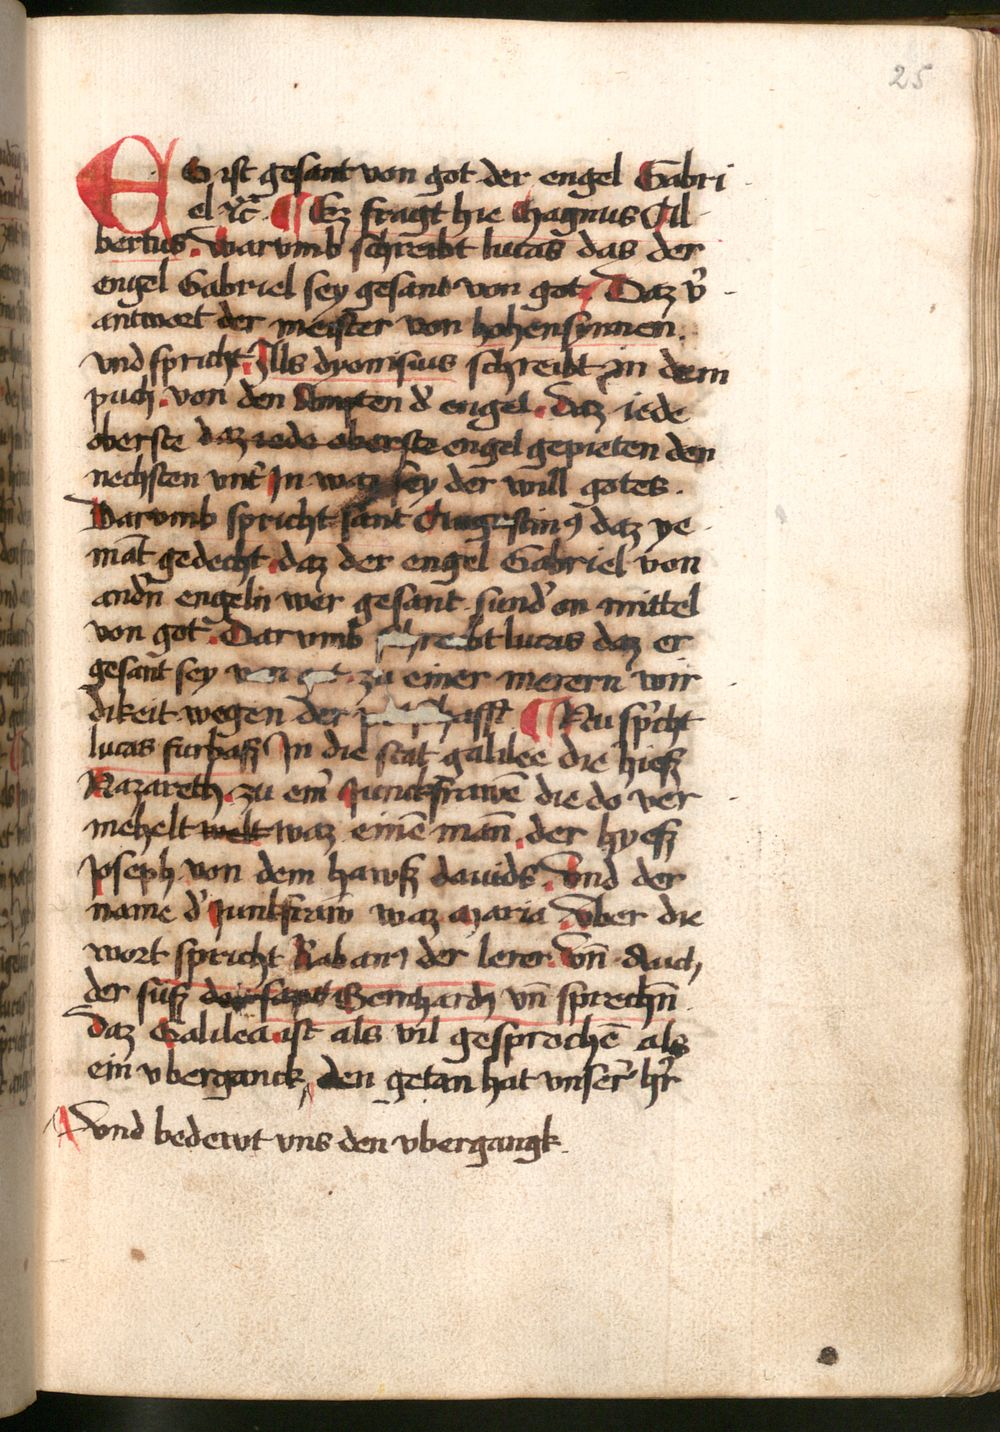 25
Es ist gesant von got der engel Gabri
el Ꝛc̃ ¶ Ez fragt hie Magnus Al
bertus. warvmb schreibt lucas das der
engel Gabriel sey gesant von got. Daz v̾
antwort der meister von hohensynnen.
vnd spricht. Alls dyonisius schreibt in dem
puch. von den Ampten d̾ engel. daz iede
oberste daz iede oberste engel gepieten den
nechsten vnt̾ In waz sey der will gotes.
Darvmb spricht sant Augustinꝰ daz ye
mãt gedecht. daz der engel Gabriel von
andñ engeln wer gesant. sund̾ on mittel
von got. Darvmb schreibt lucas daz er
gesant sey von got. zu einer merern wir
dikeit wegen der afft ¶ Nu sp̾cht
lucas furbaß In die stat galilee die hieß
Nazareth. zu em̾ Junckfrawẽ die do ver
mehelt welt waz einẽ mañ. der hyeß
Joseph von dem hawß dauids. Vnd der
name d̾ Junkfraw waz Maria. Vber die
wort spricht Raban̾ der lerer. vñ Auch
der suß der sant Bernhardꝰ vñ sprechñ
daz Galilea ist als vil gesprochẽ als
ein vberganck, den getan hat vnser̾ h̾r
vnd bedewt vns den vbergangk.